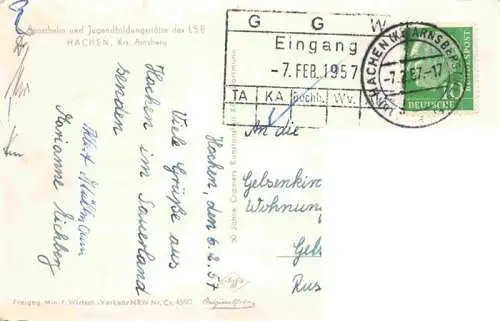 Sportheim und Jugendbildungsstätte des LSB
HACHEN, Krs. Arnsberg
Hachen, den 6.2.57
Viele Grüße aus
Hachen im Sauerland
senden
Marianne
G G W
Eingang
-7. FEB. 1957
TA KA Buchh. Wv.
HACHEN (KR ARNSBERG)
-7.2.57-17
DEUTSCHE
BUNDESPOST
10
An die
Gelsenkir
Wohnun
Gels
Rus
50 Jahre Cramers Kunstanstalt
Freigeg. Min. f. Wirtsch. u. Verkehr NRW Nr. Cr. 4550